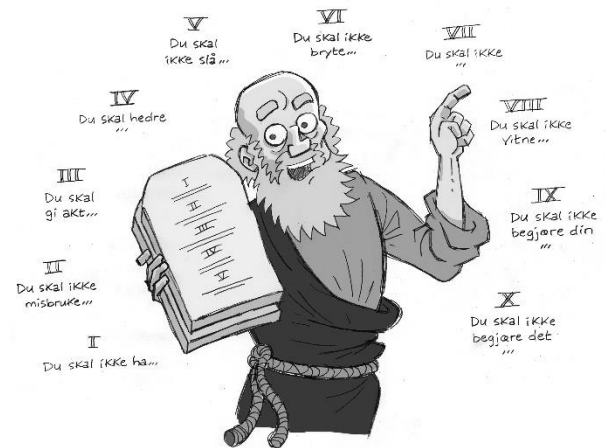 I
Du skal ikke ha...
II
Du skal ikke
misbruke...
III
Du skal
gi akt...
IV
Du skal hedre
...
V
Du skal
ikke slå...
VI
Du skal ikke
bryte...
VII
Du skal ikke
...
VIII
Du skal ikke
vitne...
IX
Du skal ikke
begjære din
...
X
Du skal ikke
begjære det
...
I
II
III
IV
V